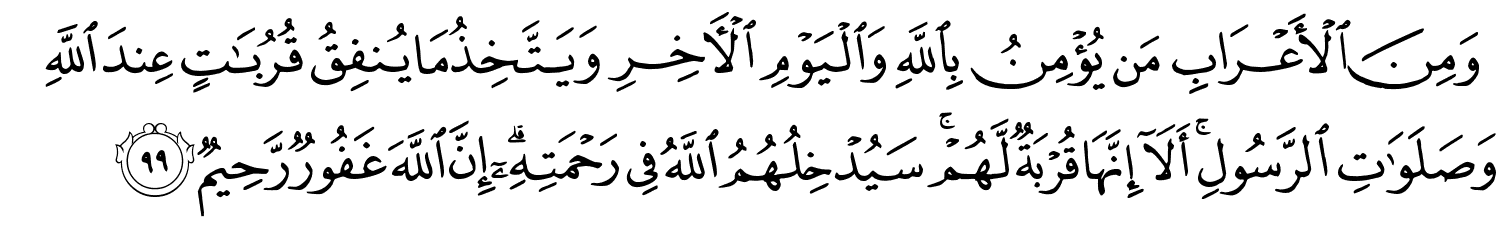 وَمِنَ ٱلْأَعْرَابِ مَن يُؤْمِنُ بِٱللَّهِ وَٱلْيَوْمِ ٱلْأَخِرِ وَيَتَّخِذُ مَا يُنفِقُ قُرُبَـٰتٍ عِندَ ٱللَّهِ
وَصَلَوَٰتِ ٱلرَّسُولِ ۚ أَلَآ إِنَّهَا قُرْبَةٌ لَّهُمْ ۚ سَيُدْخِلُهُمُ ٱللَّهُ فِى رَحْمَتِهِۦٓ ۗ إِنَّ ٱللَّهَ غَفُورٌ رَّحِيمٌ ٩٩